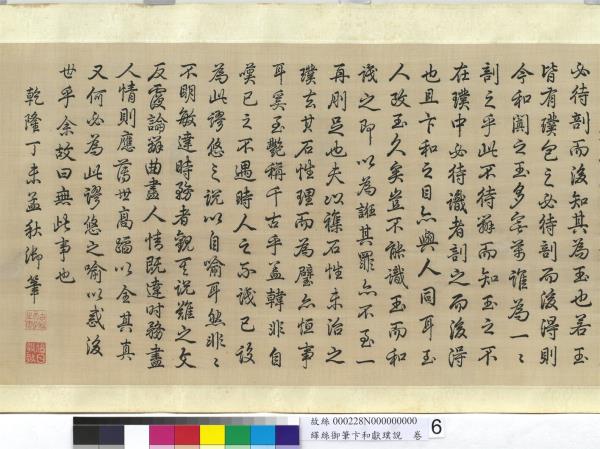 必待剖而後知其為玉也若玉
皆有璞包之必待剖而後得則
今和闐之玉多容萬誰為一一
剖之乎此不待辭而知玉之不
在璞中必待識者剖之而後得
也且卞和之目亦與人同耳玉
人攻玉久矣豈不能識玉而和
識之即以為誑其罪亦不至一
再刖足也夫以礁石性未治之
璞去其石性理而為璧亦恒事
耳奚至艷稱千古乎蓋韓非自
嘆已之不遇時人之不識已設
為此謬悠之說以自喻耳然非〻
不明敏達時務者觀其說難之文
反覆論辭曲盡人情既達時務盡
人情則應舊世高蹈以全其真
又何必為此謬悠之喻以惑後
世乎余故曰無此事也
乾隆丁未孟秋御筆
故絲 000228N000000000
緙絲御筆卞和獻璞說 卷
6